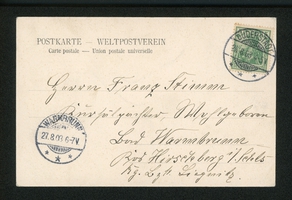 POSTKARTE — WELTPOSTVEREIN
Carte postale — Union postale universelle
Herrn Franz Stimm
Wohlgeboren
Bad Warmbrunn
Bez Hirschberg i/Schls
Rg. Bzk Liegnitz
WARMBRUNN
27.8.03.6-7V